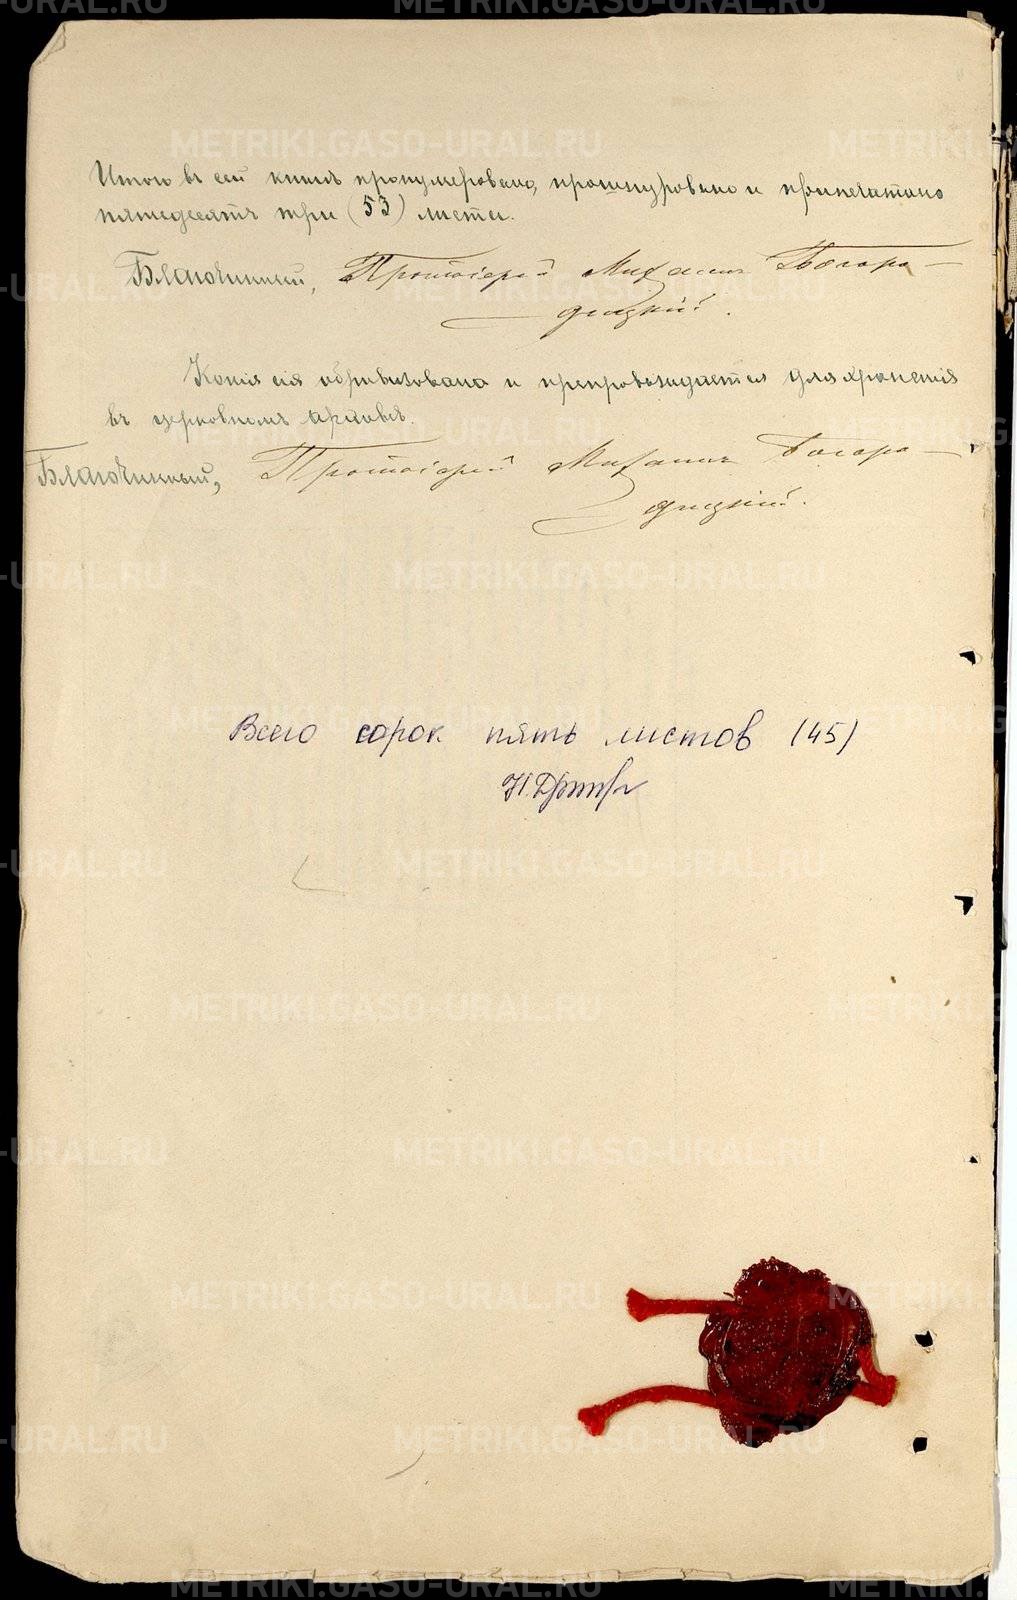 Итого въ сей книгѣ пронумеровано, прошнуровано и припечатано
пятьдесятъ три (53) листа.
Благочинный, Протоіерей Михаилъ Богоро-
дицкій.
Копія сія обревизована и препровождается для храненія
въ церковномъ архивѣ.
Благочинный, Протоіерей Михаилъ Богоро-
дицкій.
Всего сорок пять листов (45)
METRIKI.GASO-URAL.RU